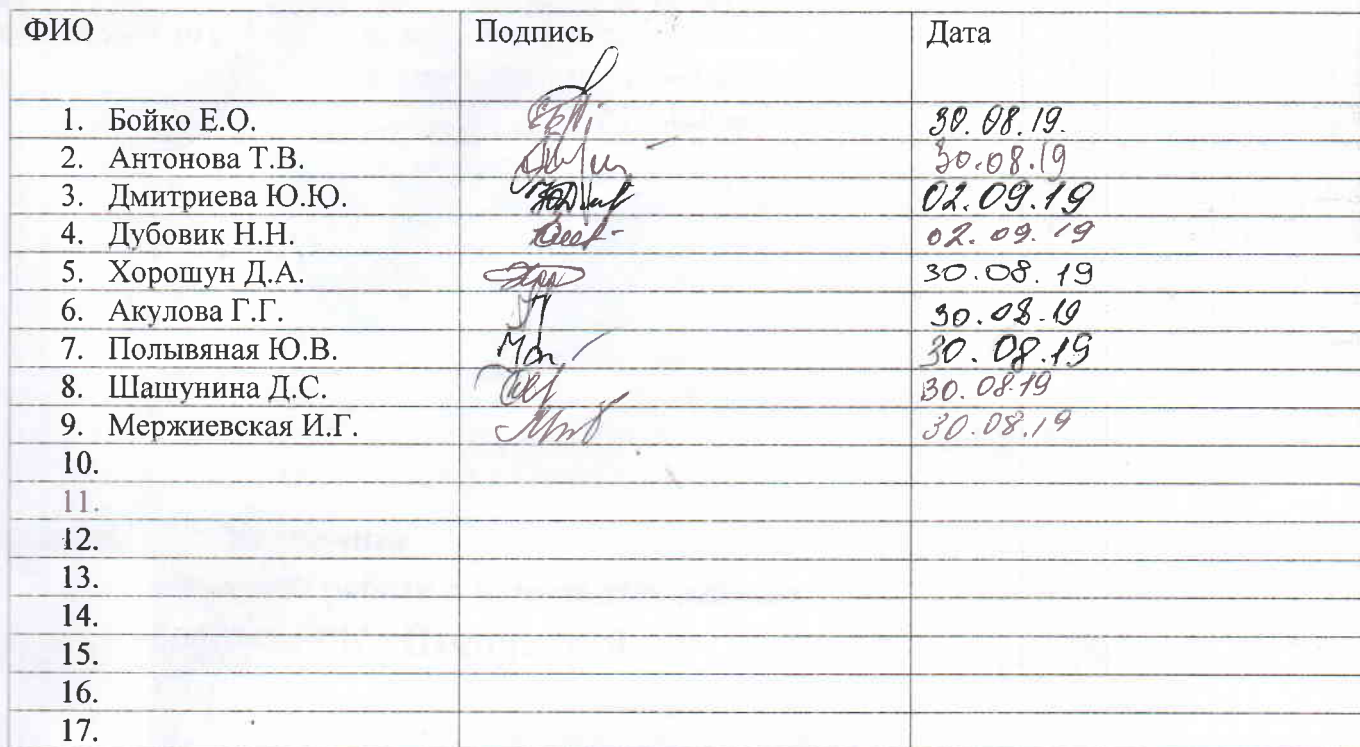 ФИО Подпись Дата
1. Бойко Е.О. 30.08.19.
2. Антонова Т.В. 30.08.19
3. Дмитриева Ю.Ю. 02.09.19
4. Дубовик Н.Н. 02.09.19
5. Хорошун Д.А. 30.08.19
6. Акулова Г.Г. 30.08.19
7. Полывяная Ю.В. 30.08.19
8. Шашунина Д.С. 30.08.19
9. Мержиевская И.Г. 30.08.19
10.
11.
12.
13.
14.
15.
16.
17.